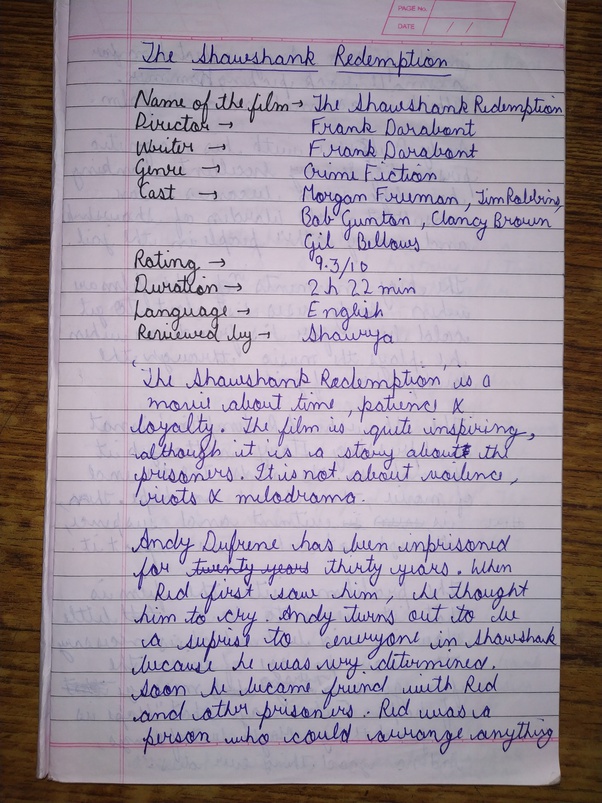 PAGE No.
DATE / /
The Shawshank Redemption
Name of the film → The Shawshank Redemption
Director → Frank Darabont
Writer → Frank Darabont
Genre → Crime Fiction
Cast → Morgan Freeman, Tim Robbins,
Bob Gunton, Clancy Brown
Gil Bellows
Rating → 9.3/10
Duration → 2 h 22 min
Language → English
Reviewed by → Shaurya
The Shawshank Redemption is a
movie about time, patience &
loyalty. The film is quite inspiring,
although it is a story about the
prisoners. It is not about voilence,
riots & melodrama.
Andy Dufrene has been inprisoned
for twenty years thirty years. When
Red first saw him, he thought
him to cry. Andy turns out to be
a suprise to everyone in Shawshank
because he was very determined.
Soon he became friend with Red
and other prisoners. Red was a
person who could arrange anything